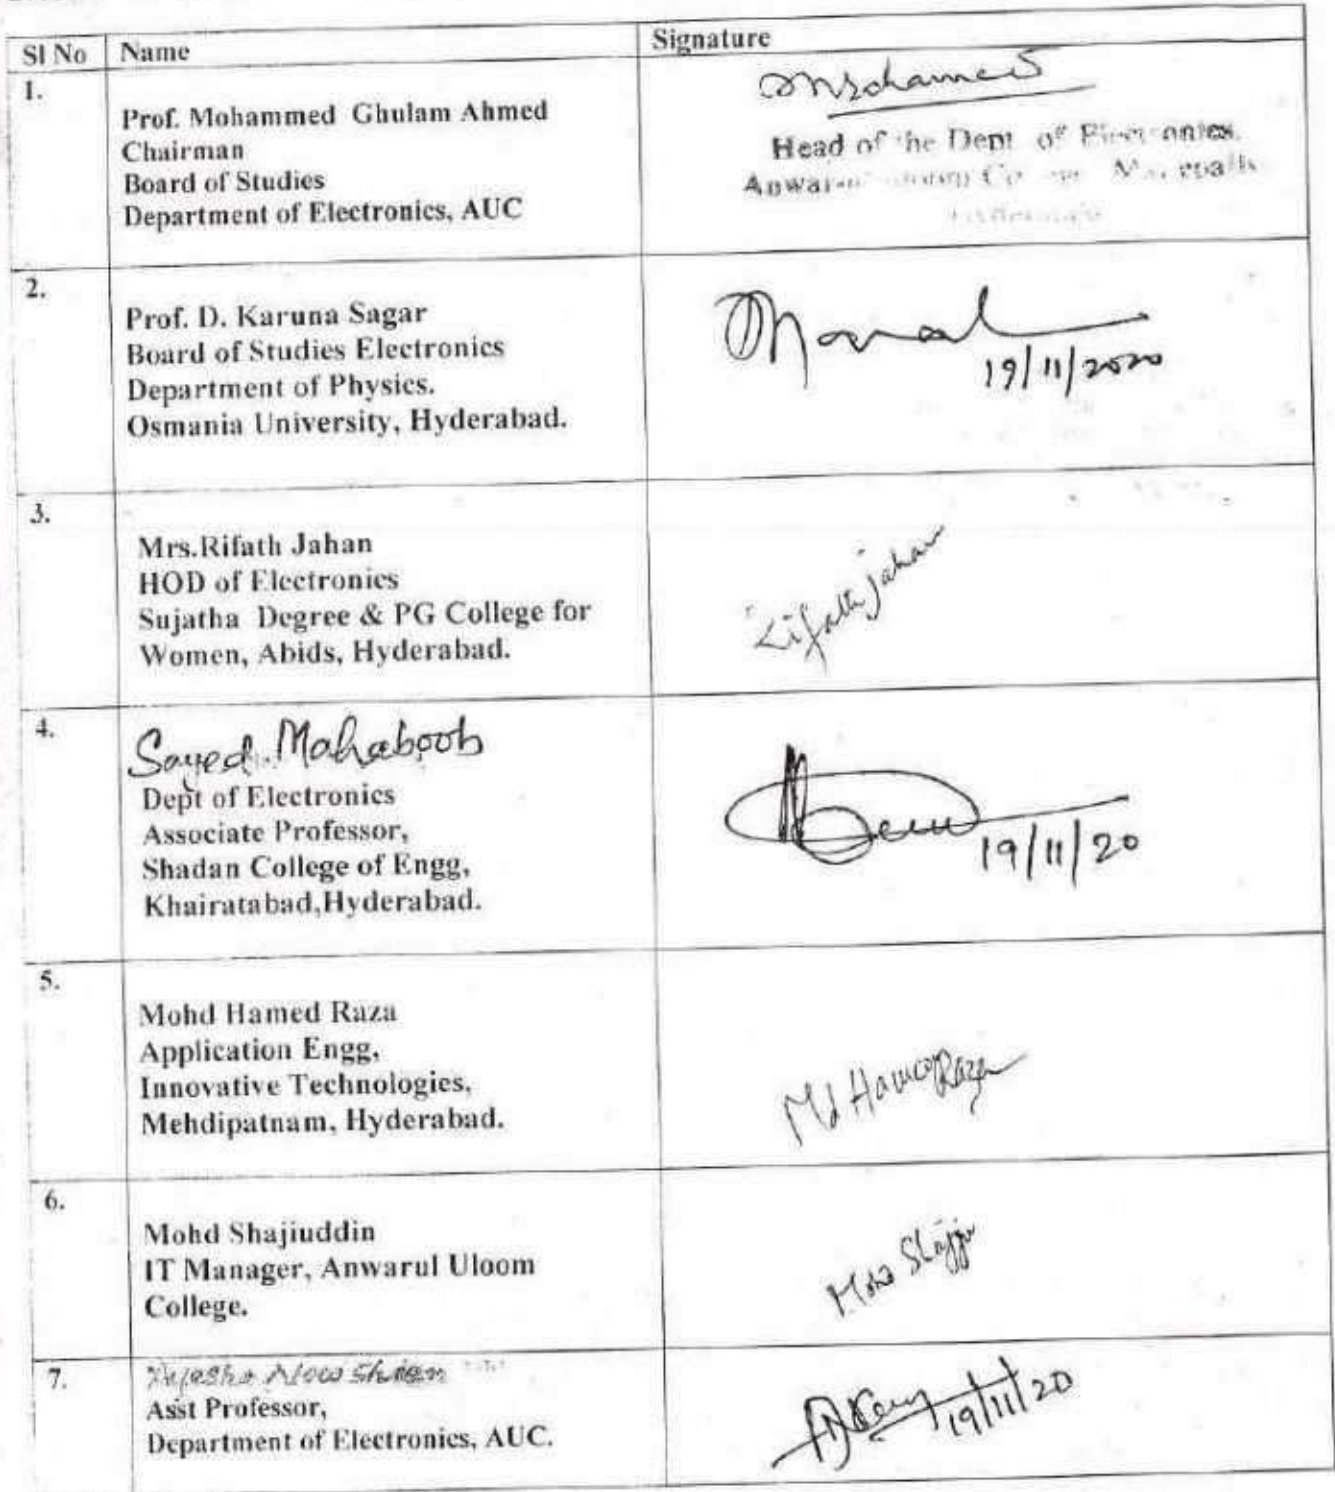 Sl No Name Signature
1.
Prof. Mohammed Ghulam Ahmed
Chairman
Board of Studies
Department of Electronics, AUC
Head of the Dept of Electronics.
2.
Prof. D. Karuna Sagar
Board of Studies Electronics
Department of Physics.
Osmania University, Hyderabad.
19/11/2020
3.
Mrs.Rifath Jahan
HOD of Electronics
Sujatha Degree & PG College for
Women, Abids, Hyderabad.
Rifath Jahan
4.
Sayed. Mahaboob
Dept of Electronics
Associate Professor,
Shadan College of Engg,
Khairatabad,Hyderabad.
19/11/20
5.
Mohd Hamed Raza
Application Engg,
Innovative Technologies,
Mehdipatnam, Hyderabad.
Md Hamed Raza
6.
Mohd Shajiuddin
IT Manager, Anwarul Uloom
College.
7.
Asst Professor,
Department of Electronics, AUC.
19/11/20